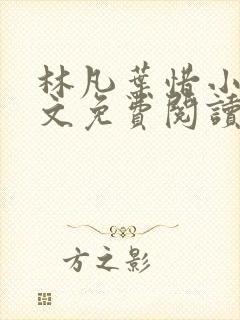 林凡葉惜小
文免費閱讀
方之影